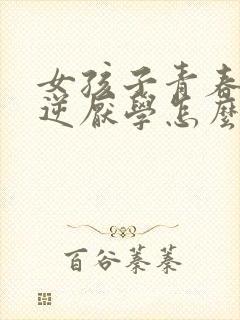 女孩子青春
逆厭學怎麼
百谷蓁蓁